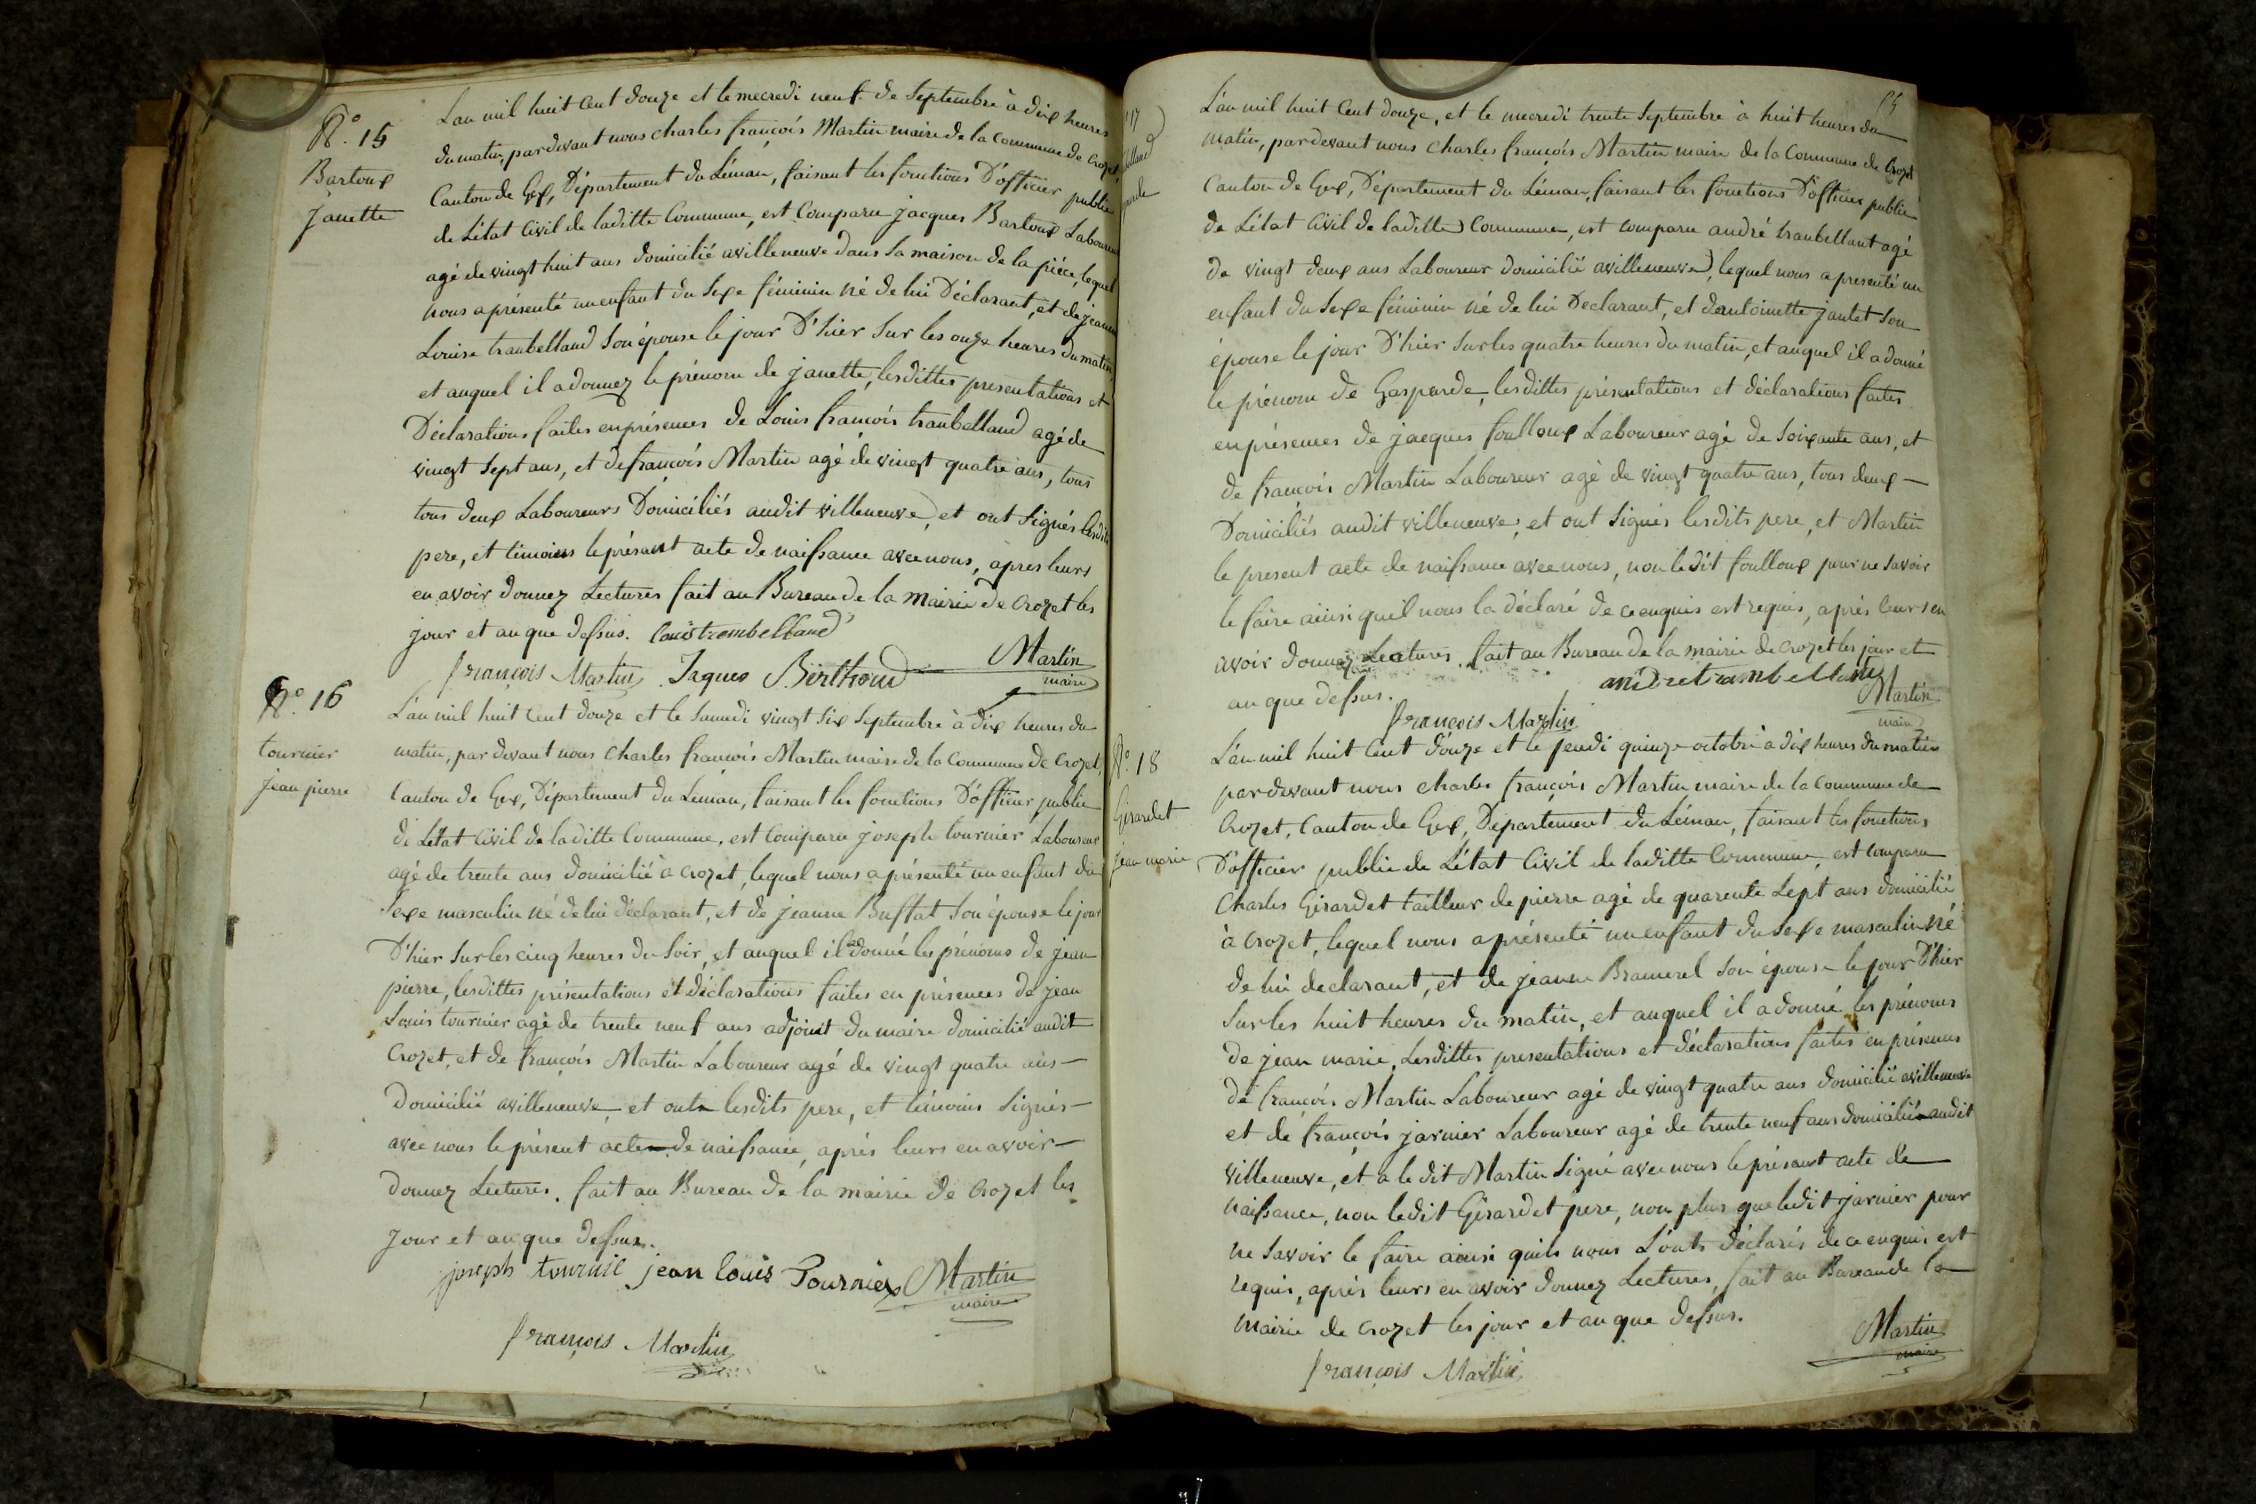 N°. 15
Bartoux
janette
L'an mil huit Cent douze et le mecredi neuf de Septembre à dix heures
du matin, pardevant nous charles françois Martin maire de la commune de Crozet,
Canton de Gex, Département du Léman, faisant les fonctions D'officier public
de L'état Civil de laditte Commune, est Comparu jacques Bartoux Laboureur
agé de vingt huit ans domicilié a villeneuve dans sa maison de la pièce, lequel
nous a présenté un enfant du Sexe féminin né de lui Déclarant, et de jeanne
Louise trambelland Son épouse le jour D'hier Sur les onze heures du matin,
et auquel il a donnez le prénom de janette, lesdittes presentations et
Déclarations faites en présences de Louis françois trambelland agé de
vingt Sept ans, et de françois Martin agé de vingt quatre ans, tous
tous deux Laboureurs Domiciliés audit villeneuve, et ont Signés lesdits
pere, et témoins le présent acte de naissance avec nous, après leurs
en avoir donnez Lectures fait au Bureau de la Mairie de Crozet les
jour et an que dessus. Louis trembelland
françois Martin Jaques Berthoud Martin
maire
N°. 16
tournier
jean pierre
L'an mil huit Cent douze et le Samedi vingt Six Septembre à dix heures du
matin, par devant nous Charles françois Martin maire de la Commune de Crozet,
Canton de Gex, Département du Léman, faisant les fonctions D'officier public
de L'état Civil de laditte Commune, est Comparu joseph tournier Laboureur
agé de trente ans domicilié à Crozet, lequel nous a présenté un enfant du
Sexe masculin né de lui déclarant, et de jeanne Buffat Son épouse le jour
D'hier Sur les cinq heures du Soir, et auquel il a donné les prénoms de jean
pierre, lesdittes présentations et déclarations faites en présences de jean
Louis tournier agé de trente neuf ans adjoint du maire domicilié audit
Crozet, et de françois Martin Laboureur agé de vingt quatre ans
Domicilié a villeneuve, et ont lesdits pere, et témoins Signés
avec nous le présent acte de naissance, après leurs en avoir
donnez Lectures. fait au Bureau de la mairie de Crozet les
jour et an que dessus.
joseph tournié jean louis Tournier Martin
maire
françois Martin
65
17
L'an mil huit Cent douze, et le mecredi trente Septembre à huit heures du
matin, pardevant nous charles françois Martin maire de la Commune de Crozet
Canton de Gex, Département du Léman, faisant les fonctions D'officier public
de L'état Civil de laditte Commune, est comparu andré trambellant agé
de vingt deux ans Laboureur domicilié a villeneuve, lequel nous a presenté un
enfant du Sexe féminin né de lui Declarant, et dantoinette jantet Son
épouse le jour D'hier Sur les quatre heures du matin, et auquel il a donné
le prénom de Gasparde, lesdittes présentations et déclarations faites
en présences de jacques foulloux Laboureur agé de Soixante ans, et
de françois Martin Laboureur agé de vingt quatre ans, tous deux
Domiciliés audit villeneuve, et ont Signés lesdits pere, et Martin
le present acte de naissance avec nous, non ledit foulloux pour ne Savoir
le faire ainsi quil nous la déclaré de ce enquis est requis, après leurs en
avoir donnez Lectures. fait au Bureau de la mairie de Crozet les jour et
an que dessus. andre trambellant
françois Martin Martin
maire
N°. 18
Girardet
jean marie
L'an mil huit Cent douze et le jeudi quinze octobre à dix heures du matin
pardevant nous charles françois Martin maire de la commune de
Crozet, Canton de Gex, Département du Léman, faisant les fonctions
D'officier public de L'état Civil de laditte Commune, est comparu
Charles Girardet tailleur de pierre agé de quarente Sept ans domicilié
à Crozet, lequel nous a présenté un enfant du Sexe masculin né
de lui declarant, et de jeanne Bramerel Son épouse le jour D'hier
Sur les huit heures du matin, et auquel il a donné les prénoms
de jean marie. Lesdittes presentations et déclarations faites en présences
de françois Martin Laboureur agé de vingt quatre ans domicilié a villeneuve
et de françois jarnier Laboureur agé de trente neuf ans domicilié audit
villeneuve, et a le dit Martin Signé avec nous le présent acte de
naissance, non ledit Girardet pere, non plus que ledit jarnier pour
ne Savoir le faire ainsi quils nous L'ont déclarés de ce enquis est
requis, après leurs en avoir donnez Lectures, fait au Bureau de la
Mairie de Crozet les jour et an que dessus.
Martin
maire
françois Martin